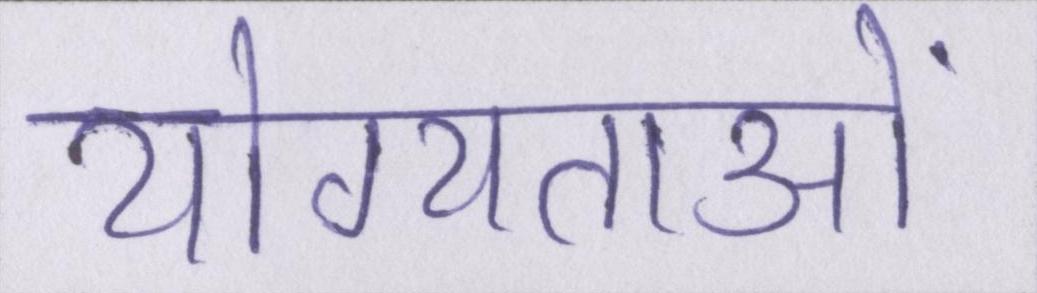 योग्यताओं